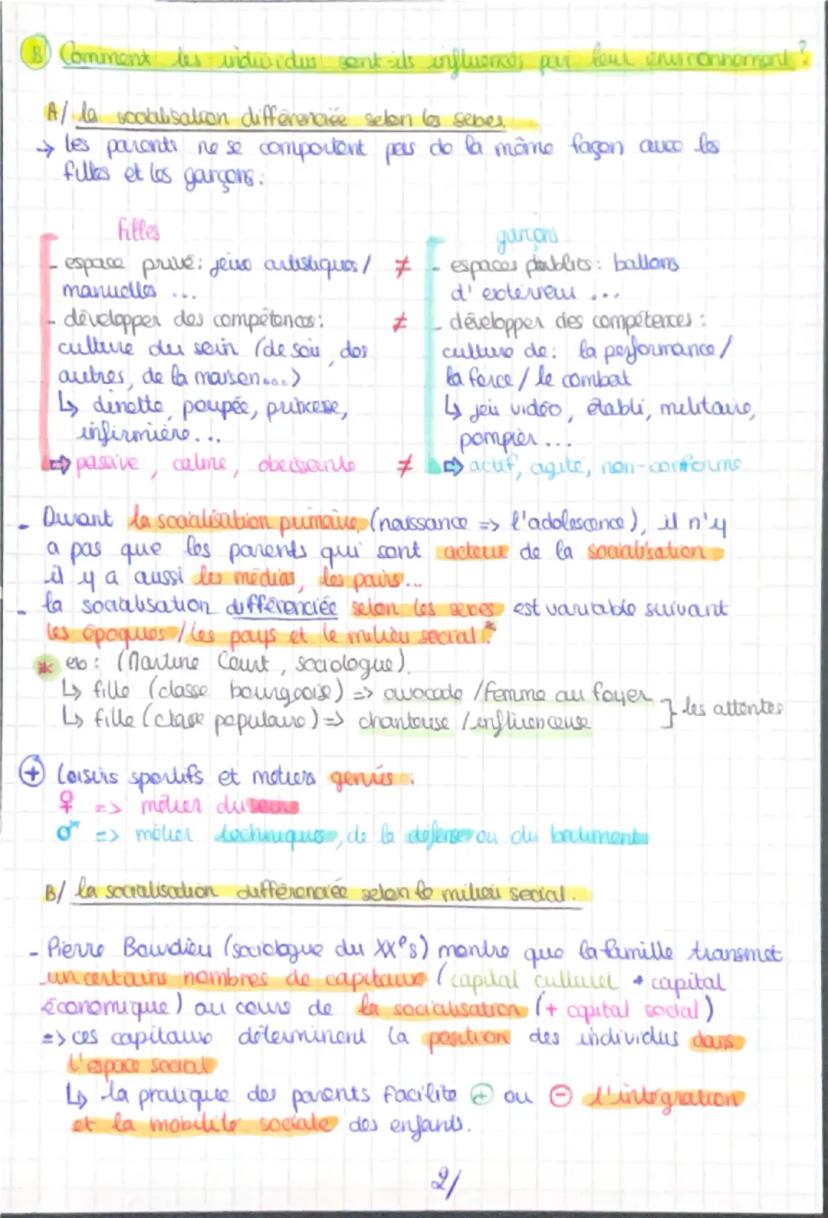 B Comment les individus sont-ils influencés par leur environnement ?
A/ la socialisation différenciée selon les sexes
→ les parents ne se comportent pas de la même façon avec les
filles et les garçons :
filles
- espace privé : jeux artistiques /
manuelles ...
- développer des compétences :
culture du soin (de soi, des
autres, de la maison...)
↳ dinette, poupée, princesse,
infirmière...
⇨ passive, calme, obéissante
≠
≠
≠
garçons
- espaces publics : ballons
d'extérieur ...
- développer des compétences :
culture de : la performance /
la force / le combat
↳ jeu vidéo, établi, militaire,
pompier...
⇨ actif, agité, non-conforme
- Durant la socialisation primaire, (naissance => l'adolescence), il n'y
a pas que les parents qui sont acteur de la socialisation
il y a aussi les médias, les pairs...
- la socialisation différenciée selon les sexes est variable suivant
les époques / les pays et le milieu social.*
* ex : (Martine Court, sociologue).
↳ fille (classe bourgeoise) => avocade / femme au foyer
↳ fille (classe populaire) => chanteuse / influenceuse
} les attentes
+ Loisirs sportifs et métiers genrés :
♀ => métier du soins
♂ => métier techniques, de la défense ou du batiment
B/ la socialisation différenciée selon le milieu social.
- Pierre Bourdieu (sociologue du XXe s) montre que la famille transmet
un certains nombres de capitaux (capital culturel + capital
économique) au cours de la socialisation (+ capital social)
=> ces capitaux déterminent la position des individus dans
l'espace social
↳ la pratique des parents facilite + ou - l'intégration
et la mobilité sociale des enfants.
2/